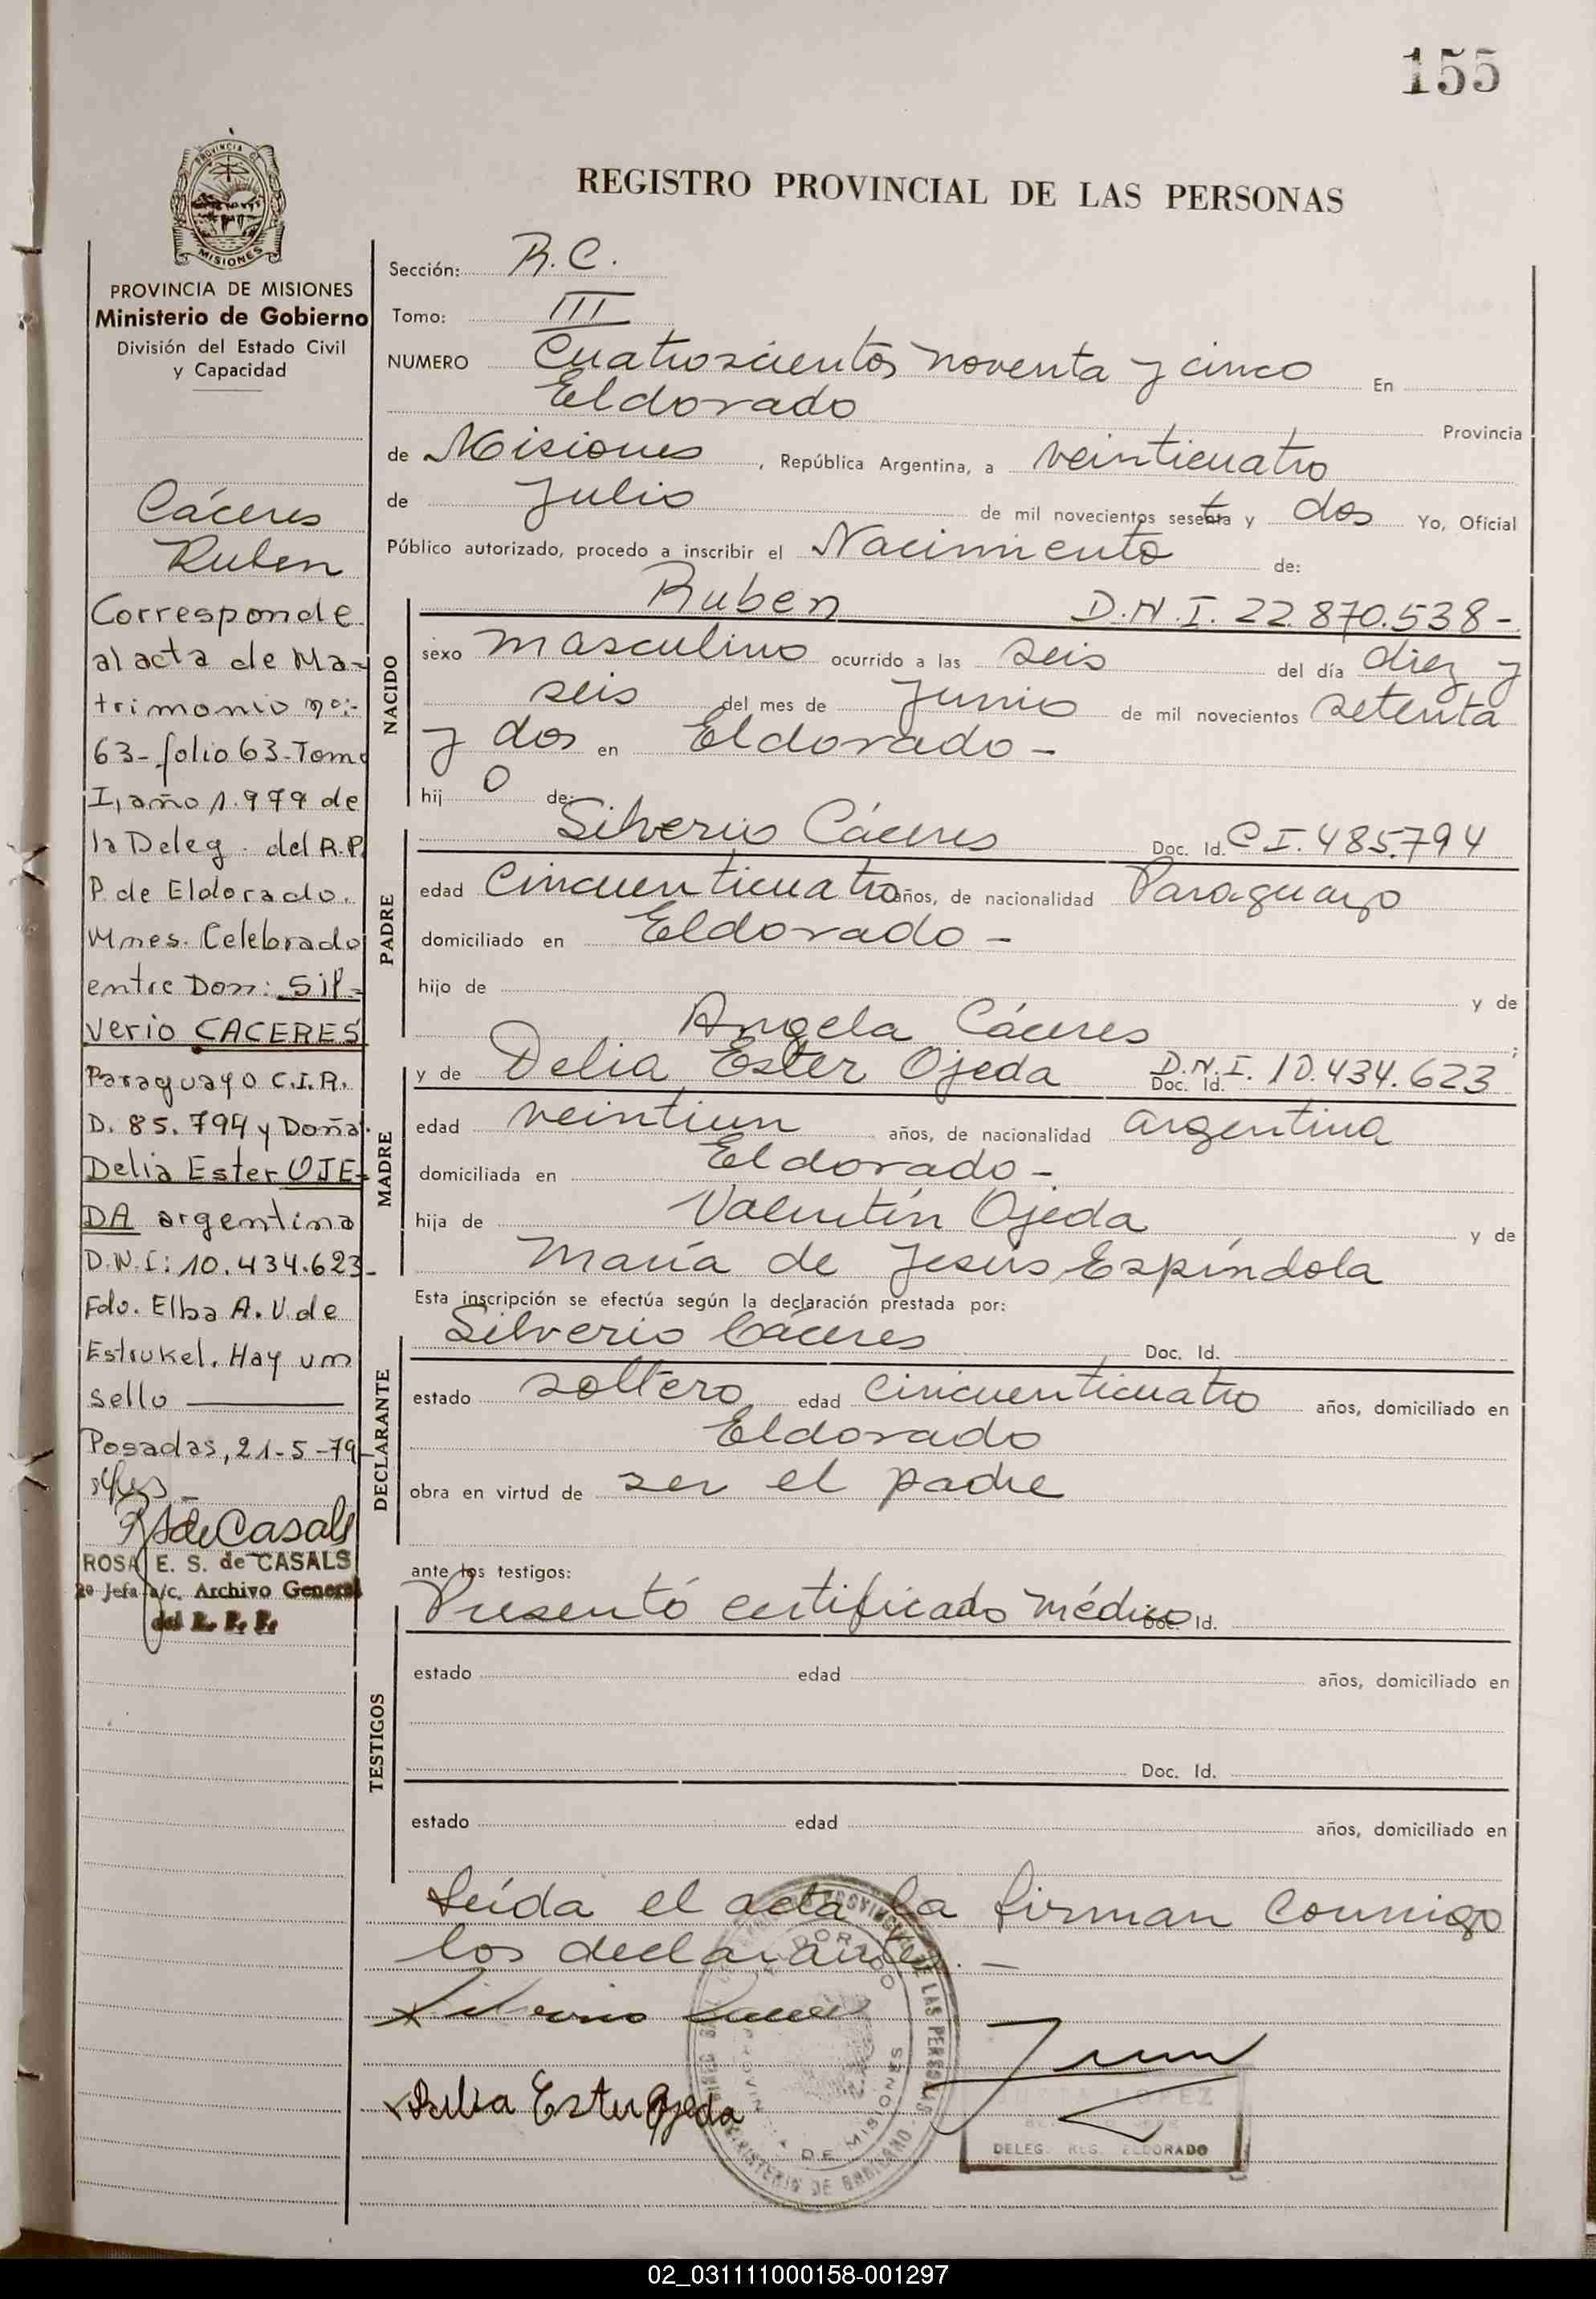 155
PROVINCIA DE
MISIONES
REGISTRO PROVINCIAL DE LAS PERSONAS
PROVINCIA DE MISIONES
Ministerio de Gobierno
División del Estado Civil
y Capacidad
Cáceres
Ruben
Corresponde
al acta de Ma-
trimonio nº:-
63-folio 63-Tomo
I, año 1.979 de
la Deleg. del R.P.
P. de Eldorado.
Mnes. Celebrado
entre Don: Sil-
verio CACERES
Paraguayo C.I.R.
D. 85.794 y Doña
Delia Ester OJE-
DA argentina
D.N.I: 10.434.623-
Fdo. Elba A. V. de
Estrukel. Hay um
sello
Posadas, 21-5-79-
RSdeCasals
ROSA E. S. de CASALS
2º Jefa a/c. Archivo General
del R. P. P.
Sección: R.C.
Tomo: III
NUMERO Cuatroscientos noventa y cinco En
Eldorado Provincia
de Misiones, República Argentina, a veinticuatro
de Julio de mil novecientos sesetenta y dos Yo, Oficial
Público autorizado, procedo a inscribir el Nacimiento de:
NACIDO
Ruben D.N.I. 22.870.538-
sexo masculino ocurrido a las seis del día diez y
seis del mes de Junio de mil novecientos setenta
y dos en Eldorado-
hij o de:
PADRE
Silverio Cáceres Doc. Id. C I. 485.794
edad Cincuenticuatro años, de nacionalidad Paraguayo
domiciliado en Eldorado-
hijo de y de
Angela Cáceres ;
MADRE
y de Delia Ester Ojeda Doc. Id. D.N.I. 10.434.623
edad veintiun años, de nacionalidad argentina
domiciliada en Eldorado-
hija de Valentín Ojeda y de
María de Jesús Espíndola
Esta inscripción se efectúa según la declaración prestada por:
DECLARANTE
Silverio Cáceres Doc. Id.
estado soltero edad cincuenticuatro años, domiciliado en
Eldorado
obra en virtud de ser el padre
ante los testigos:
TESTIGOS
Presentó certificado médico Doc. Id.
estado edad años, domiciliado en
Doc. Id.
estado edad años, domiciliado en
Leída el acta la firman conmigo
los declarantes.-
Silverio Caceres
Delia Ester Ojeda
ELDORADO
PROVINCIA DE MISIONES
MINISTERIO DE GOBIERNO
LOPEZ
DELEG. REG. ELDORADO
02_031111000158-001297